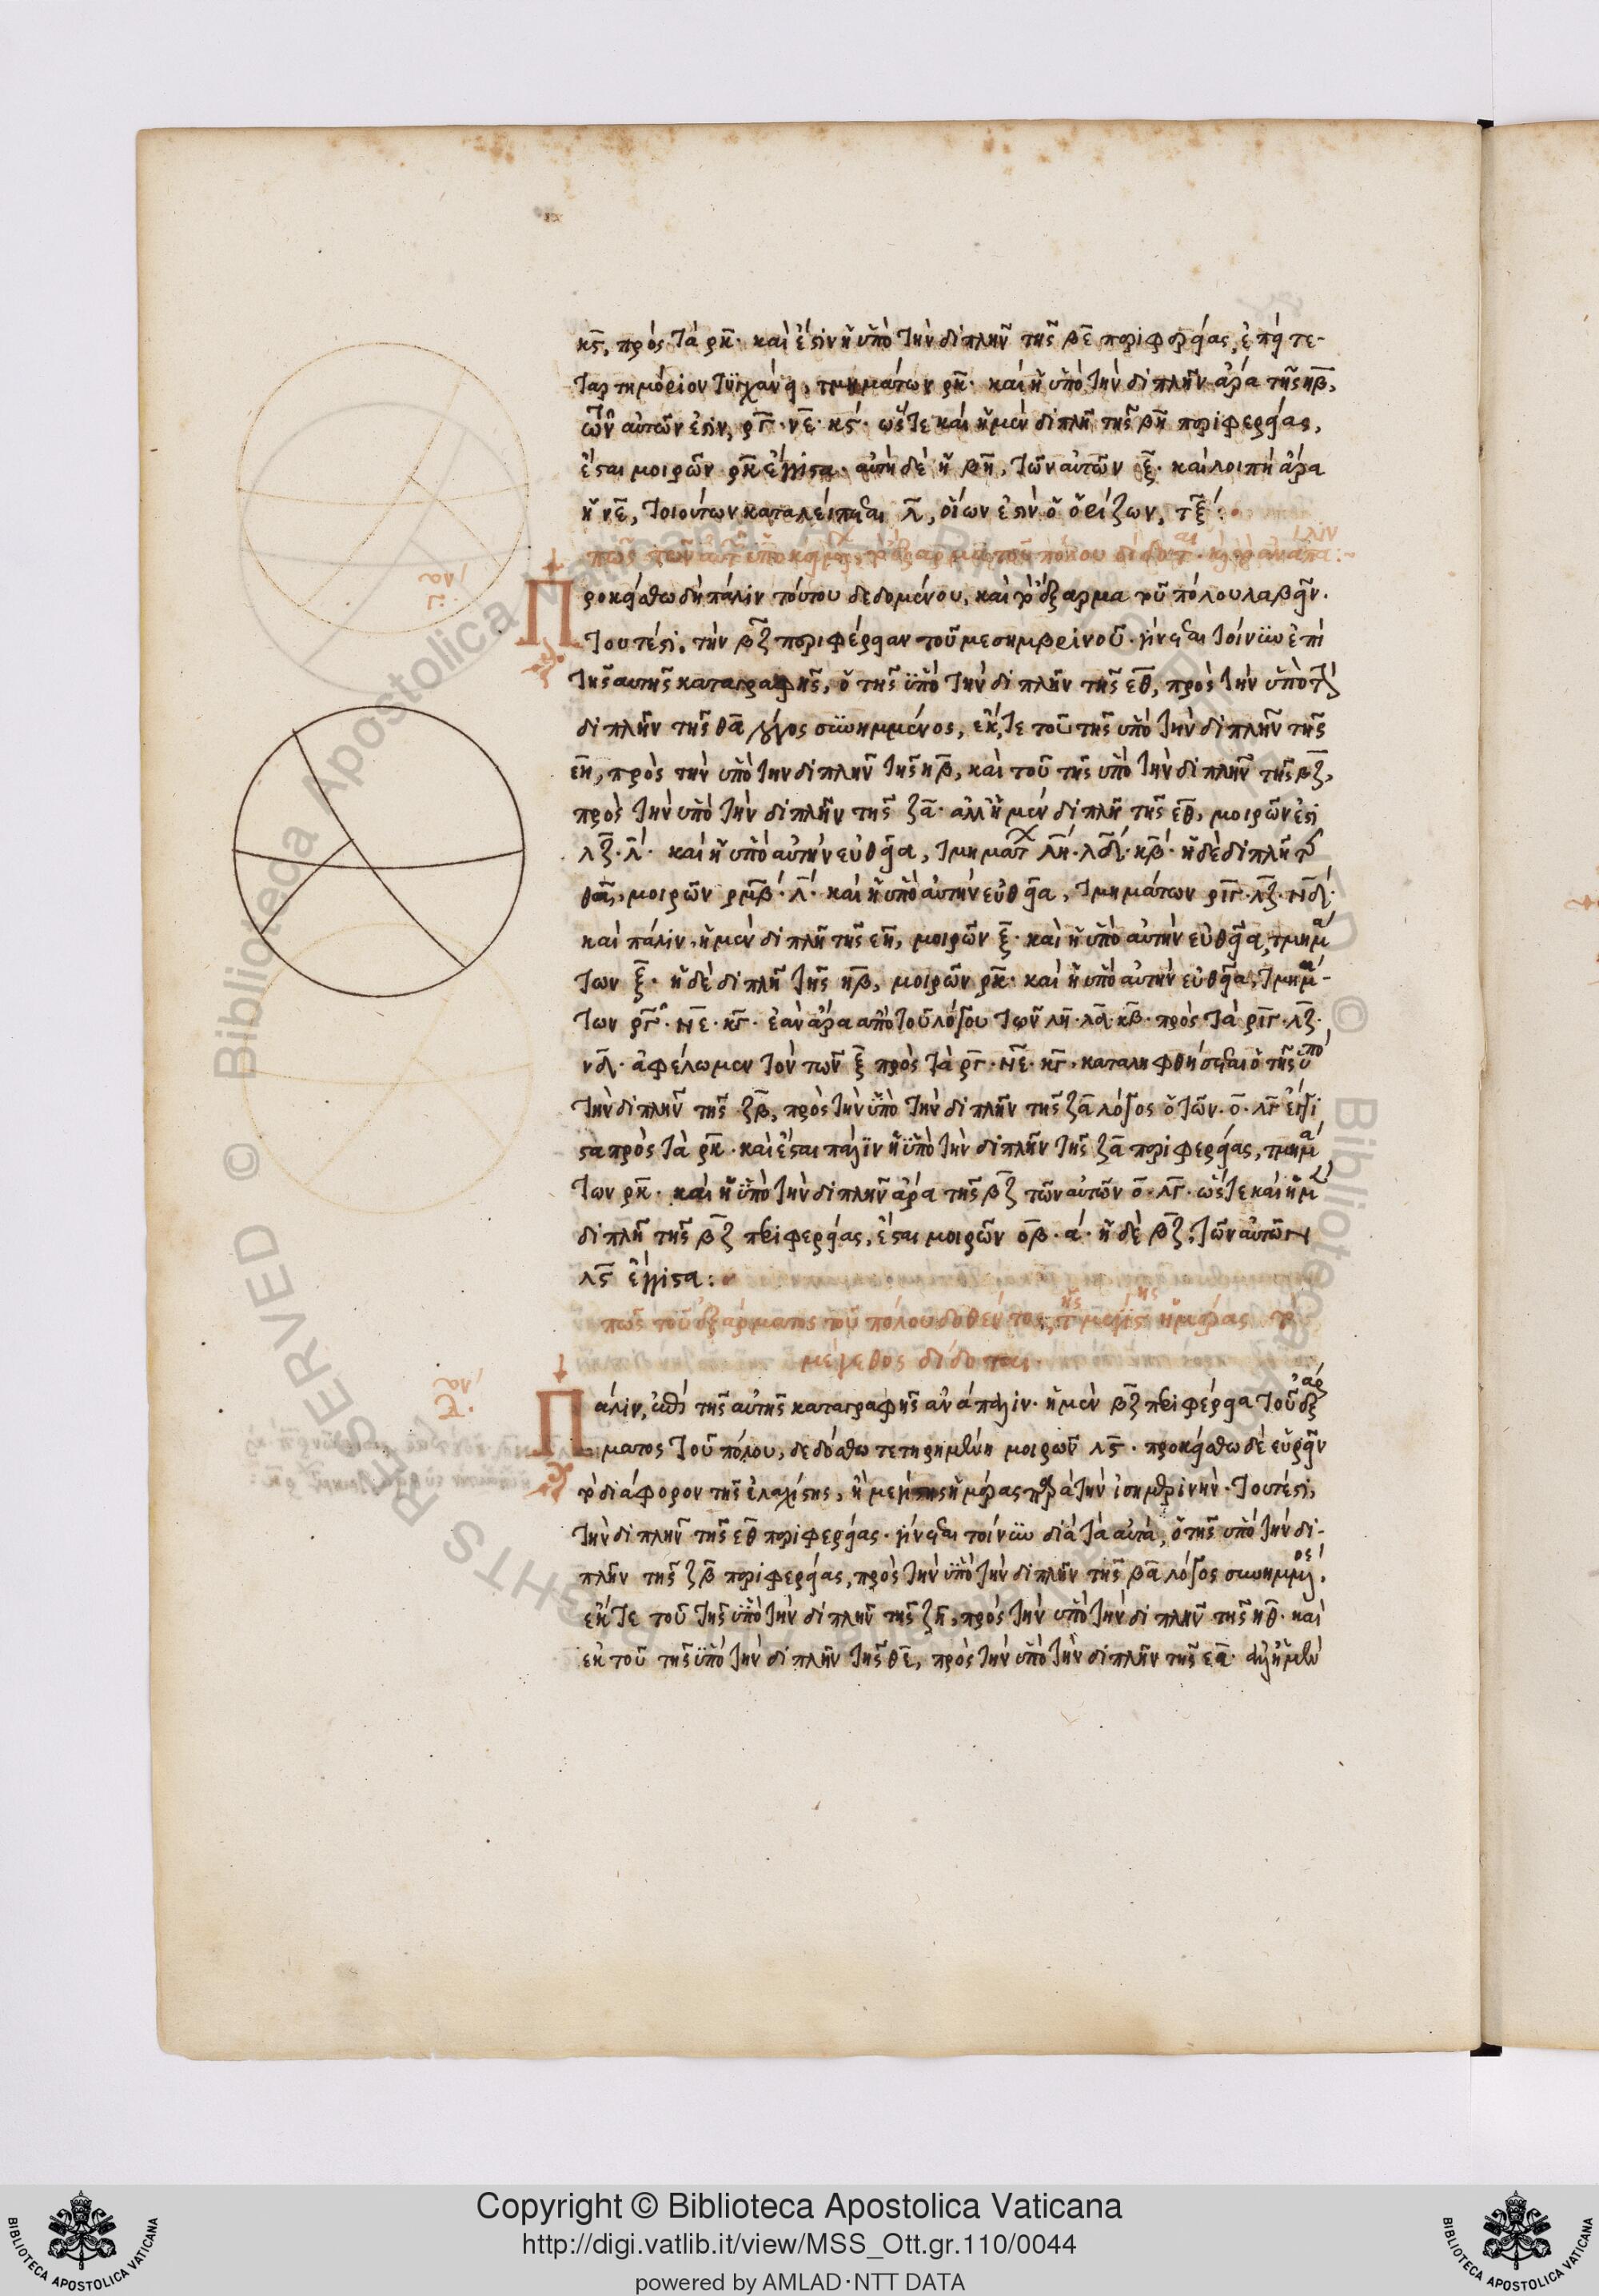 κϛ, πρὸς τὰ ρκ· καὶ ἔστιν ἡ ὑπὸ τὴν διπλῆν τῆς βε περιφερείας, ἐπεὶ τε-
ταρτημόριον τυγχάνει, τμημάτων ρκ· καὶ ἡ ὑπὸ τὴν διπλῆν ἄρα τῆς ηβ,
τῶν αὐτῶν ἐστιν, ργ· νε· κϛ· ὥστε καὶ ἡ μὲν διπλῆ τῆς βη περιφερείας,
ἔσται μοιρῶν ρκ ἔγγιστα· αὐτὴ δὲ ἡ βη, τῶν αὐτῶν ξ· καὶ λοιπὴ ἄρα
ἡ ηε, τοιούτων καταλείπεται λ, οἵων ἐστὶν ὁ ὁρίζων, τξ:
πῶς τῶν αὐτῶν ὑποκειμένων, τὸ ἔξαρμα τοῦ πόλου δίδοται· καὶ τὸ ἀνάπαλιν:
Προκείσθω δὴ πάλιν τούτου δεδομένου, καὶ τὸ ἔξαρμα τοῦ πόλου λαβεῖν.
τουτέστι, τὴν βζ περιφέρειαν τοῦ μεσημβρινοῦ· γίνεται τοίνυν ἐπὶ
τῆς αὐτῆς καταγραφῆς, ὁ τῆς ὑπὸ τὴν διπλῆν τῆς εθ, πρὸς τὴν ὑπὸ τὴν
διπλῆν τῆς θα λόγος συνημμένος, ἔκ τε τοῦ τῆς ὑπὸ τὴν διπλῆν τῆς
εη, πρὸς τὴν ὑπὸ τὴν διπλῆν τῆς ηβ, καὶ τοῦ τῆς ὑπὸ τὴν διπλῆν τῆς βζ,
πρὸς τὴν ὑπὸ τὴν διπλῆν τῆς ζα· ἀλλ' ἡ μὲν διπλῆ τῆς εθ, μοιρῶν ἐστι
λζ· λ· καὶ ἡ ὑπὸ αὐτὴν εὐθεῖα, τμημάτων λη· λδ· κβ· ἡ δὲ διπλῆ τῆς
θα, μοιρῶν ρμβ· λ· καὶ ἡ ὑπὸ αὐτὴν εὐθεῖα, τμημάτων ριγ· λζ· νδ·
καὶ πάλιν, ἡ μὲν διπλῆ τῆς εη, μοιρῶν ξ· καὶ ἡ ὑπὸ αὐτὴν εὐθεῖα, τμημά
των ξ· ἡ δὲ διπλῆ τῆς ηβ, μοιρῶν ρκ· καὶ ἡ ὑπὸ αὐτὴν εὐθεῖα, τμημά-
των ργ· νε· κγ· ἐὰν ἄρα ἀπὸ τοῦ λόγου τῶν λη· λδ· κβ· πρὸς τὰ ριγ· λζ·
νδ· ἀφέλωμεν τὸν τῶν ξ πρὸς τὰ ργ· νε· κγ· καταληφθήσεται ὁ τῆς ὑπὸ
τὴν διπλῆν τῆς ζβ, πρὸς τὴν ὑπὸ τὴν διπλῆν τῆς ζα λόγος ὁ τῶν· ο· λγ ἔγγι
στα πρὸς τὰ ρκ· καὶ ἔσται πάλιν ἡ ὑπὸ τὴν διπλῆν τῆς ζα περιφερείας, τμημά
των ρκ· καὶ ἡ ὑπὸ τὴν διπλῆν ἄρα τῆς βζ τῶν αὐτῶν ο· λγ· ὥστε καὶ ἡ μὲν
διπλῆ τῆς βζ περιφερείας, ἔσται μοιρῶν οβ· α· ἡ δὲ βζ, τῶν αὐτῶν
λϛ ἔγγιστα:
πῶς τοῦ ἐξάρματος τοῦ πόλου δοθέντος, τῆς μεγίστης ἡμέρας τὸ
μέγεθος δίδοται.
Πάλιν, ἐπὶ τῆς αὐτῆς καταγραφῆς ἀνάπαλιν· ἡ μὲν βζ περιφέρεια τοῦ ἐξάρ
ματος τοῦ πόλου, δεδόσθω τετηρημένη μοιρῶν λϛ· προκείσθω δὲ εὑρεῖν
τὸ διάφορον τῆς ἐλαχίστης, ἢ μεγίστης ἡμέρας παρὰ τὴν ἰσημερινὴν· τουτέστι,
τὴν διπλῆν τῆς εθ περιφερείας· γίνεται τοίνυν διὰ τὰ αὐτὰ, ὁ τῆς ὑπὸ τὴν δι-
πλῆν τῆς ζβ περιφερείας, πρὸς τὴν ὑπὸ τὴν διπλῆν τῆς βα λόγος συνημμένος,
ἔκ τε τοῦ τῆς ὑπὸ τὴν διπλῆν τῆς ζη, πρὸς τὴν ὑπὸ τὴν διπλῆν τῆς ηθ· καὶ
ἐκ τοῦ τῆς ὑπὸ τὴν διπλῆν τῆς θε, πρὸς τὴν ὑπὸ τὴν διπλῆν τῆς εα· ἀλλ' ἡ μὲν
RESERVED © Biblioteca Apostolica Vaticana
Copyright © Biblioteca Apostolica Vaticana
http://digi.vatlib.it/view/MSS_Ott.gr.110/0044
powered by AMLAD·NTT DATA
BIBLIOTECA APOSTOLICA VATICANA
BIBLIOTECA APOSTOLICA VATICANA